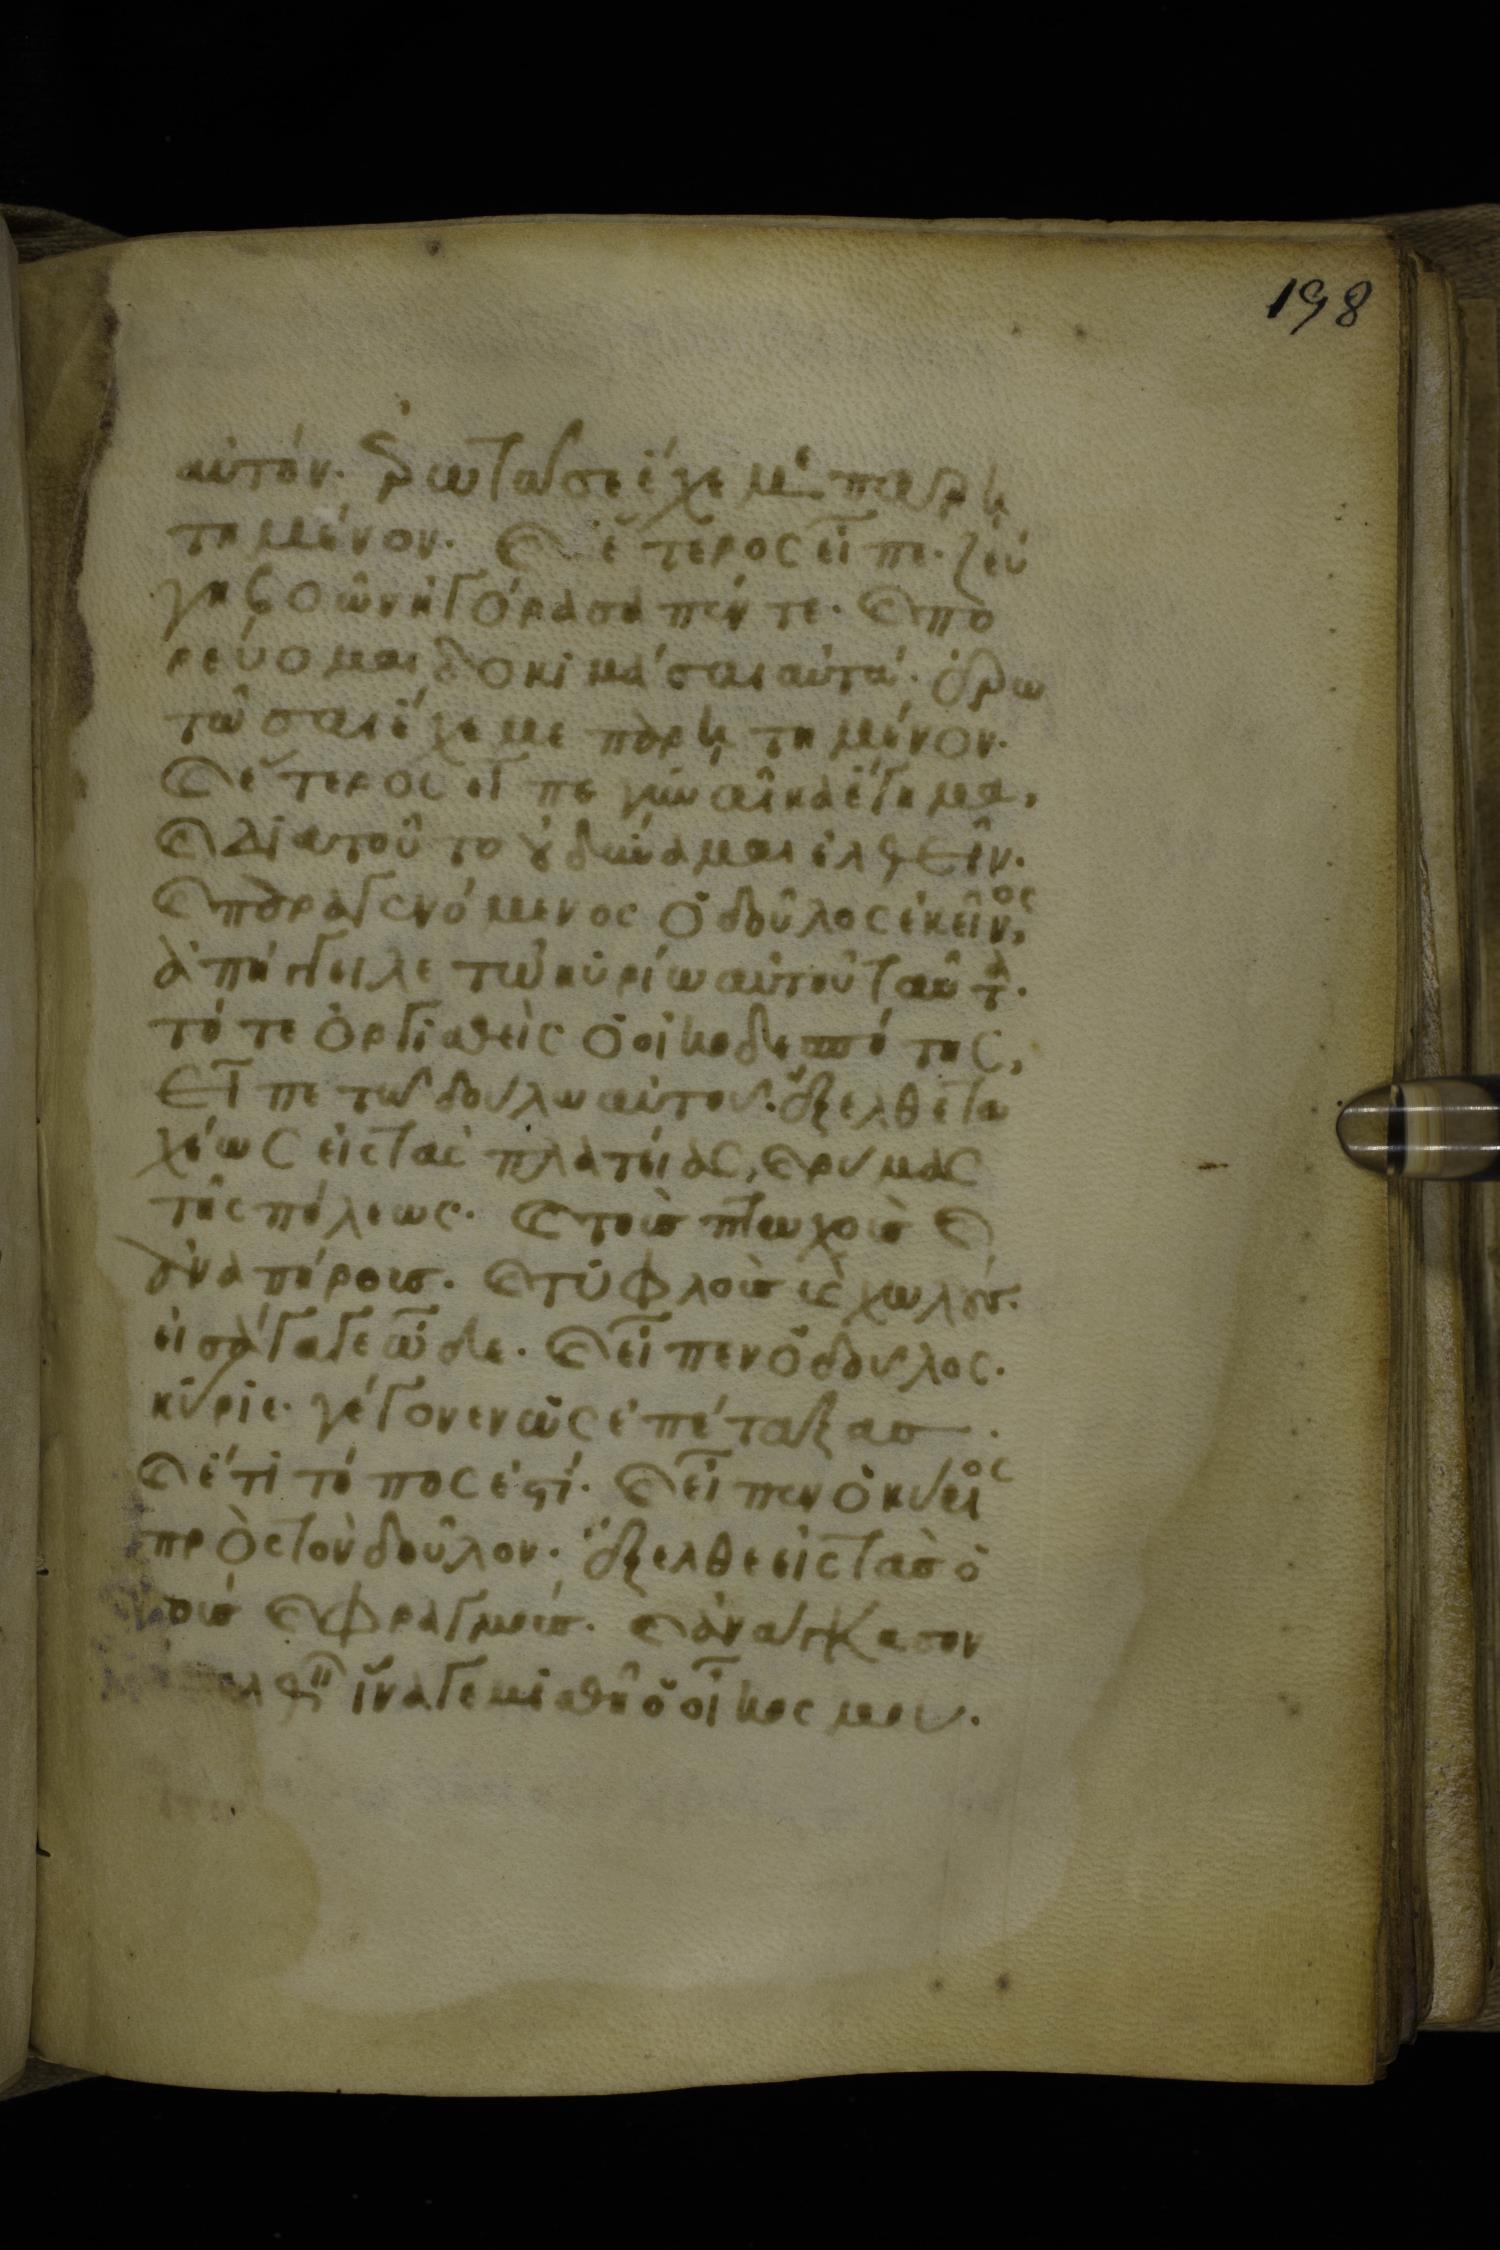 198
αὐτόν. ἐρωτῶ σε ἔχε με παρῃ
τημένον. ϗ ἕτερος εἶπε. ζεύ
γη βοῶν ἠγόρασα πέντε. ϗ πο
ρεύομαι δοκιμάσαι αὐτά. ἐρω
τῶ σαι ἔχε με παρῃτημένον.
ϗ ἕτερος εἶπε γυναῖκα ἔγημα,
ϗ διατοῦτο οὐ δύναμαι ἐλθεῖν.
ϗ παραγενόμενος ὁ δοῦλος ἐκεῖνος,
ἀπήγγειλε τῶ κυρίω αὐτοῦ ταῦτα.
τότε ὀργισθεὶς ὁ οἰκοδεσπότης,
εἶπε τῶ δούλω αὐτοῦ. ἔξελθε τα
χέως εἰς τὰς πλατείας, ϗ ρύμας
τῆς πόλεως. ϗ τοὺς πτωχοὺς ϗ
ἀναπήρους. ϗ τυφλοὺς ϗ χωλοὺς.
εἰσάγαγε ὧδε. ϗ εἶπεν ὁ δοῦλος.
κύριε. γέγονεν ὡς ἐπέταξας.
ϗ ἔτι τόπος ἐστί. ϗ εἶπεν ὁ κύριος
πρὸς τὸν δοῦλον. ἔξελθε εἰς τὰς ὁ
δοὺς ϗ φραγμούς. ϗ ἀνάγκασον
ἵνα γεμισθῆ ὁ οἶκος μου.